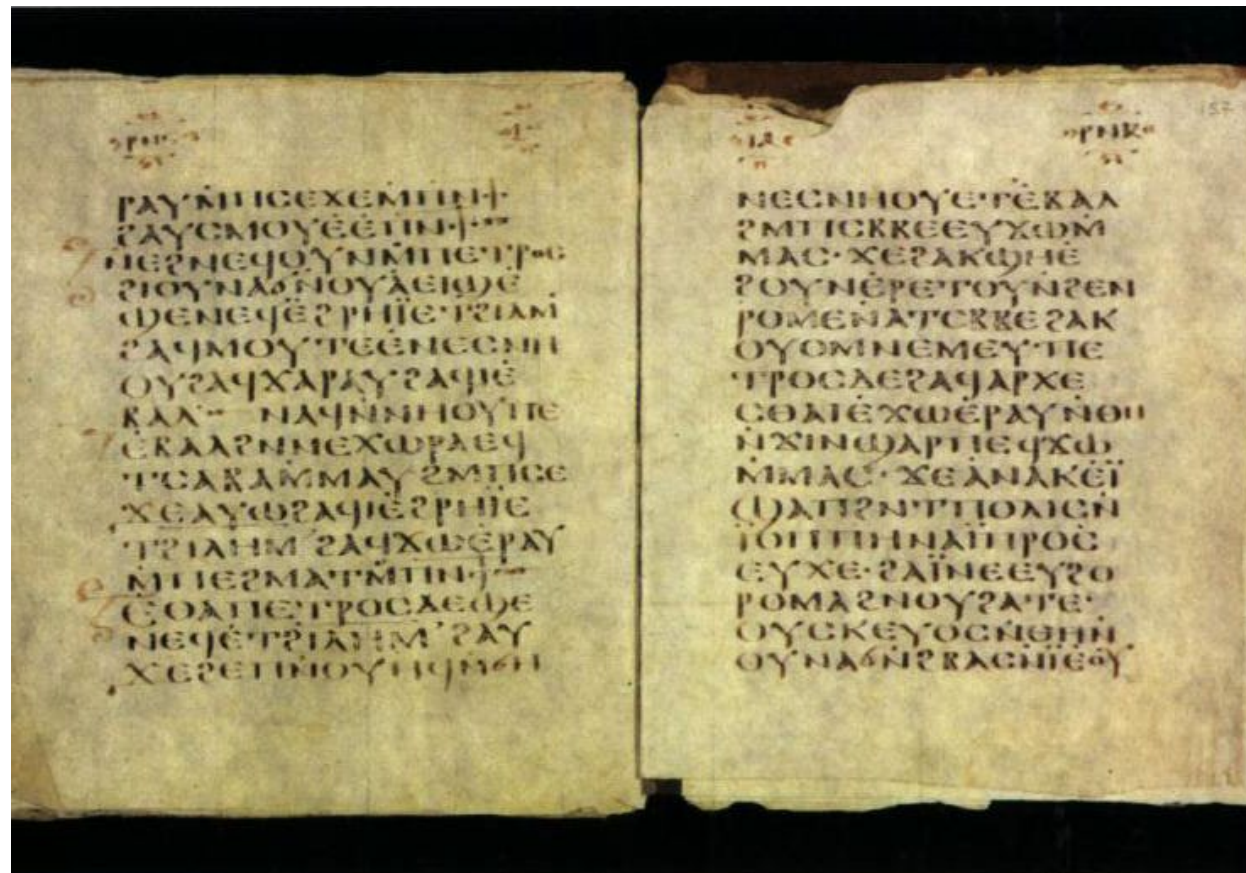 ⲣⲛⲁ ⲓ
ⲣⲁⲩⲙ̇ⲡⲓⲥⲉϫⲉⲙ̇ⲡⲛ·ϯ·
ϩⲁⲩⲥⲙⲟⲩⲉ̇ⲉ̇ⲡⲛ·ϯ
ⲛⲉϩⲛⲉϥⲟⲩⲛⲙ̇ⲡⲉⲧⲣⲟⲥ
ϩⲓⲟⲩⲛⲁϭⲛ̇ⲟⲩⲁ̇ⲉⲓϣⲉ̇
ϣⲉⲛⲉϥⲉ̇ϩⲣⲏⲓ̈ⲉ̇ⲧϩⲓⲗⲙ
ϩⲁϥⲙⲟⲩⲧⲉⲉ̇ⲛⲉⲥⲛⲏ
ⲟⲩϩⲁϥϫⲁⲣⲁⲩϩⲁϥⲓ̇ⲉ̇
ⲃⲁⲗ ⲛⲁϥⲛ̇ⲛⲏⲟⲩⲡⲉ
ⲉ̇ⲃⲁⲗϩⲛⲛⲉⲭⲱⲣⲁⲉϥ
ⲧⲥⲁⲃⲁⲙ̇ⲙⲁⲩϩⲙⲡⲥⲉ
ϫⲉⲁⲩⲱϩⲁϥⲓ̇ⲉ̇ϩⲣⲏⲓ̈ⲉ̇
ⲧϩⲓⲗⲏⲙ ϩⲁϥϫⲱⲉ̇ⲣⲁⲩ
ⲙ̇ⲡⲉϩⲙⲁⲧⲙ̇ⲡⲛ·ϯ
ϩⲟⲧⲁⲡⲉⲧⲣⲟⲥⲇⲉϣⲉ
ⲛⲉϥⲉ̇ⲧϩⲓⲗⲏⲙ ϩⲁⲩ
ϫⲉϩⲉⲡⲛ̇ⲟⲩⲏϥⲛϭⲏ
ⲓⲁ ⲣⲛⲃ
ⲛⲉⲥⲛⲏⲟⲩⲉ̇ⲧⲉ̇ⲃⲁⲗ
ϩⲙⲡⲥⲃⲃⲉⲉⲩϫⲱⲙ̇
ⲙⲁⲥ· ϫⲉϩⲁⲕϣⲏⲉ̇
ϩⲟⲩⲛⲉ̇ⲣⲉⲧⲟⲩⲛ̇ϩⲉⲛ
ⲣⲟⲙⲉⲛ̇ⲁⲧⲥⲃⲃⲉϩⲁⲕ
ⲟⲩⲟⲙⲛⲉⲙⲉⲩ· ⲡⲉ
ⲧⲣⲟⲥⲇⲉϩⲁϥⲁⲣⲭⲉ
ⲥⲑⲁⲓⲉ̇ϫⲱⲉ̇ⲣⲁⲩⲛ̇ⲑⲏ
ⲛ̇ϫⲓⲛϣⲁⲣⲡⲉϥϫⲱ
ⲙ̇ⲙⲁⲥ· ϫⲉⲁ̇ⲛⲁⲕⲉ̇ⲓ̈
ϣⲁⲡϩⲛⲧⲡⲟⲗⲓⲥⲛ̇
ⲓ̈ⲟⲡⲡⲏⲛⲁⲓ̈ⲡⲣⲟⲥ
ⲉⲩⲭⲉ· ϩⲁⲓ̈ⲛⲉⲉⲩϩⲟ
ⲣⲟⲙⲁϩⲛⲟⲩϩⲁⲧⲉ·
ⲟⲩⲥⲕⲉⲩⲟⲥⲛ̇ⲑⲏⲛ̇
ⲟⲩⲛⲁϭⲛ̇ϩⲃⲁⲥⲛ̇ⲓ̈ⲉⲟⲩ